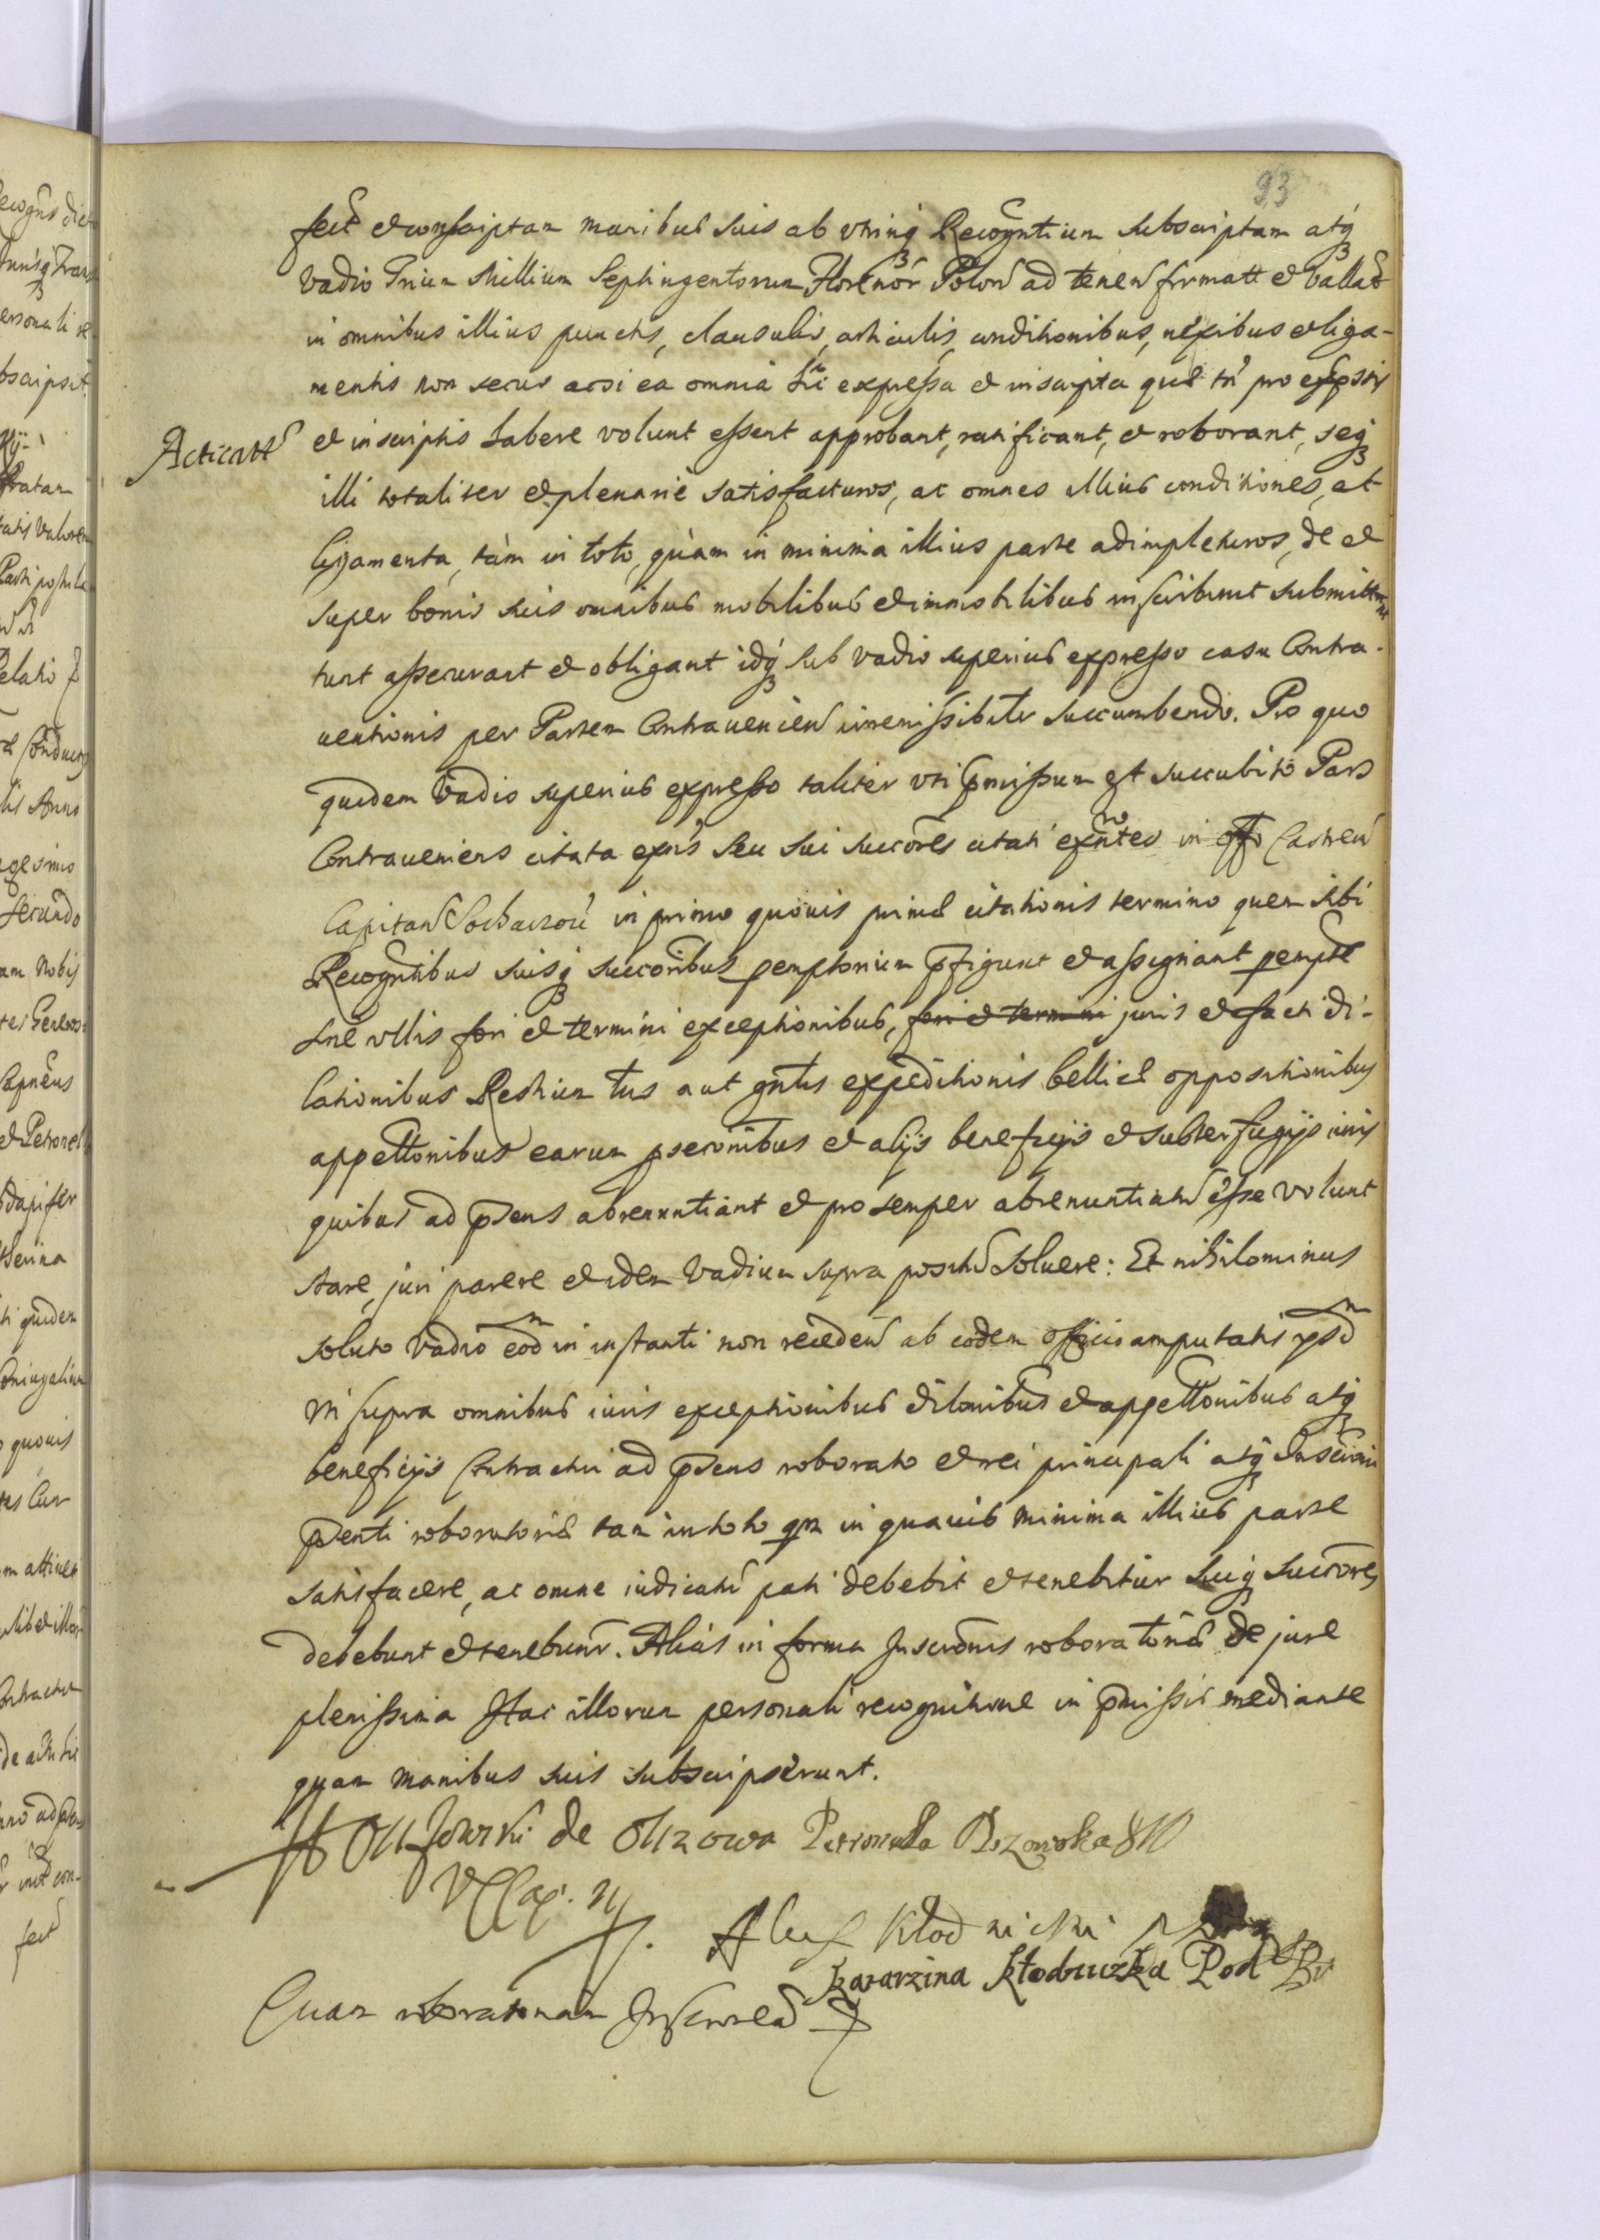 93
fect et conscriptam manibus suis ab utrinq Recogntium subscriptam atq
vadio Trium Millium Septingentorum Florenor Polon ad tenen firmatt et vallat
in omnibus illius punctis, clausulis, articulis, conditionibus, nexibus et liga-
mentis non secus acsi ea omnia hic expressa et inscripta quae tn pro expssis
Acticatt
et inscriptis habere volunt essent approbant, ratificant, et roborant, seq
illi totaliter et plenarie satisfacturos, ac omnes illius conditiones, et
ligamenta, tam in toto, quam in minima illius parte adimpleturos, de et
super bonis suis omnibus mobilibus et immobilibus inscribunt submitt
tunt assecurant et obligant idq sub vadio superius expresso casu Contra-
ventionis per Partem Contravenien irremissibiliter succumbendo. Pro quo
quidem Vadio superius expresso taliter uti pmissum est succubito Pars
Contraveniens citata exns seu sui succores citati exntes in offo Castren
Capitan Sochaczov in primo quovis primae citationis termino quem sibi
Recogntibus suisq succoribus pemptorium pfigunt et assignant pempte
sine ullis fori et termini exceptionibus, fori et termini juris et facti di-
lationibus Restium tus aut gntis expeditionis bellicae oppositionibus
appellonibus earum psecuonibus et alijs beneficijs et subterfugijs iuris
quibus ad psens abrenuntiant et pro semper abrenuntiatu esse volunt
stare, juri parere et idem Vadium supra positu solvere: Et nihilominus
soluto Vadio eod in instanti non receden ab eodem officio amputatis
uti supra omnibus iuris exceptionibus dilonibus et appellonibus atq
beneficijs Contractui ad psens roborato et rei principali atq Inscrioni
psenti roboratoriae tam in toto qm in quavis minima illius parte
satisfacere, ac omne iudicatu pati debebit et tenebitur suiq succores
debebunt et tenebunr. Alias in forma Inscronis roboratoriae de jure
plenissima Stac illorum personali recognitione in pmissis mediante
quam manibus suis subscripserunt.
de Olszowa Petronella
Alex Kłodnicki
Katarzina Kłodnizka Pod
Quam roboratoriam